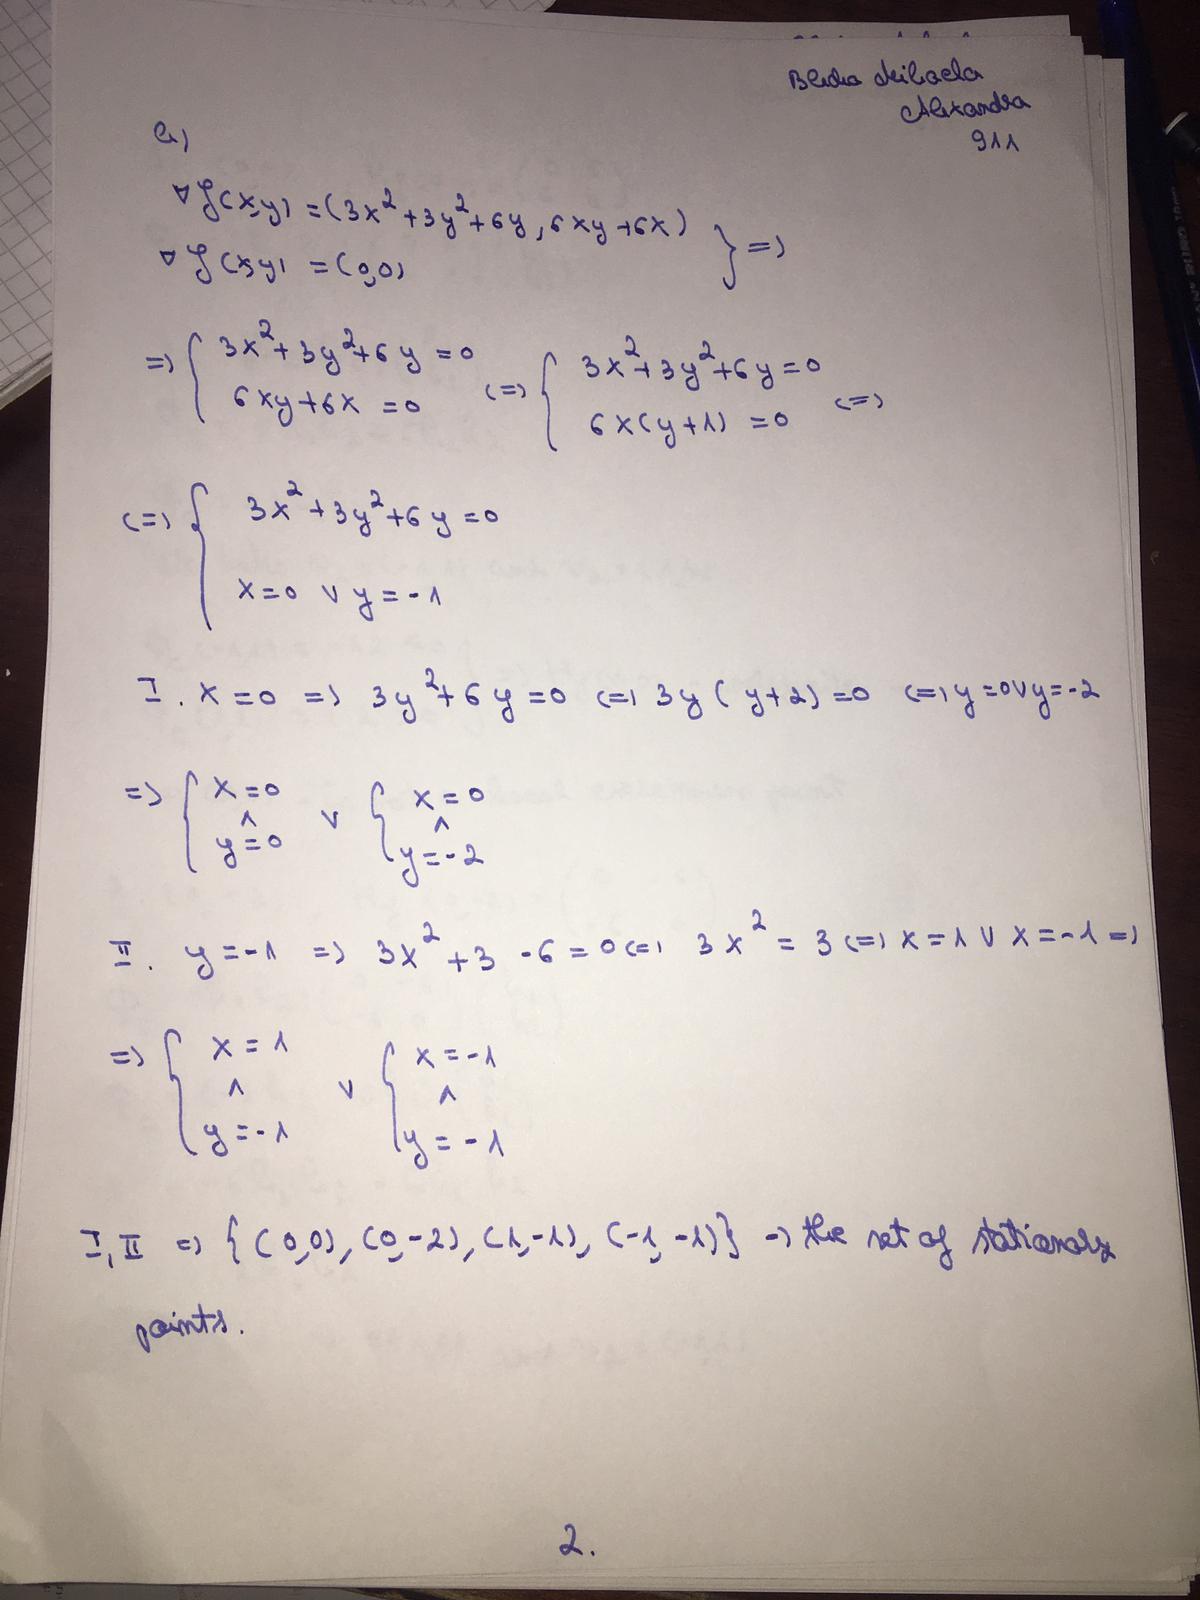 Alexandra
911
∇f(x,y) = (3x²+3y²+6y, 6xy+6x)
∇f(x,y) = (0,0) } =>
=> { 3x²+3y²+6y = 0 <=> { 3x²+3y²+6y = 0 <=>
6xy+6x = 0 6x(y+1) = 0
<=> { 3x²+3y²+6y = 0
x=0 ∨ y=-1
I. x=0 => 3y²+6y=0 <=> 3y(y+2)=0 <=> y=0 ∨ y=-2
=> { x=0 ∨ { x=0
∧ ∧
y=0 y=-2
II. y=-1 => 3x²+3-6=0 <=> 3x²=3 <=> x=1 ∨ x=-1 =>
=> { x=1 ∨ { x=-1
∧ ∧
y=-1 y=-1
I, II => {(0,0), (0,-2), (1,-1), (-1,-1)} -> the set of stationary
points.
2.